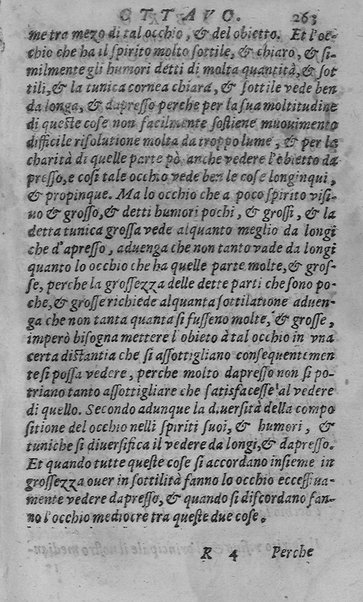 OTTAVO. 263
me tra mezo di tal occhio, & del obietto. Et l'oc-
chio che ha il spirito molto sottile, & chiaro, & si-
milmente gli humori detti di molta quantità, & sot
tili, & la tunica cornea chiara, & sottile vede ben
da longa, & dapresso perche per la sua moltitudine
di queste cose non facilmente sostiene muouimento
difficile risolutione molta da troppo lume, & per la
charità di quelle parte pò anche vedere l'obietto da
presso, e così tale occhio vede ben le cose longinqui,
& propinque. Ma lo occhio che a poco spirito visi-
uo & grosso, & detti humori pochi, & grossi, & la
detta tunica grossa vede alquanto meglio da longi
che d'apresso, aduenga che non tanto vade da longi
quanto lo occhio che ha quelle parte molte, & gros-
se, perche la grossezza delle dette parti che sono po-
che, & grosse richiede alquanta sottilatione aduen-
ga che non tanta quanta si fusseno molte, & grosse,
imperò bisogna mettere l'obieto à tal occhio in vna
certa distantia che si assottigliano consequentemen
te si possa vedere, perche molto dapresso non si po-
triano tanto assottigliare che satisfacesse al vedere
di quello. Secondo adunque la d.uersità della compo
sitione del occhio nelli spiriti suoi, & humori, &
tuniche si diuersifica il vedere da longi, & dapresso.
Et quando tutte queste cose si accordano insieme in
grossezza ouer in sottilità fanno lo occhio eccessiua-
mente vedere dapresso, & quando si discordano fan-
no l'occhio mediocre tra queste due cose.
R 4 Perche